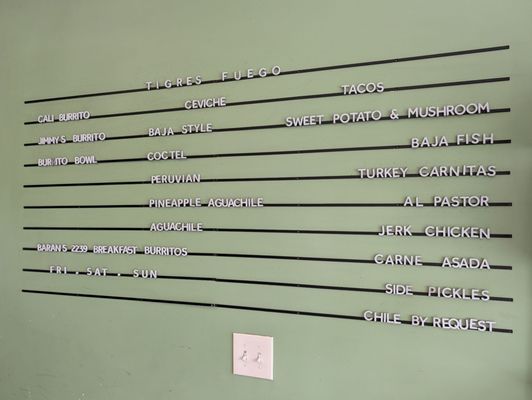 TIGRES FUEGO
CEVICHE TACOS
CALI BURRITO
JIMMY'S BURRITO BAJA STYLE SWEET POTATO & MUSHROOM
BURRITO BOWL COCTEL BAJA FISH
PERUVIAN TURKEY CARNITAS
PINEAPPLE AGUACHILE AL PASTOR
AGUACHILE JERK CHICKEN
BARAN'S 2239 BREAKFAST BURRITOS CARNE ASADA
FRI . SAT . SUN SIDE PICKLES
CHILE BY REQUEST